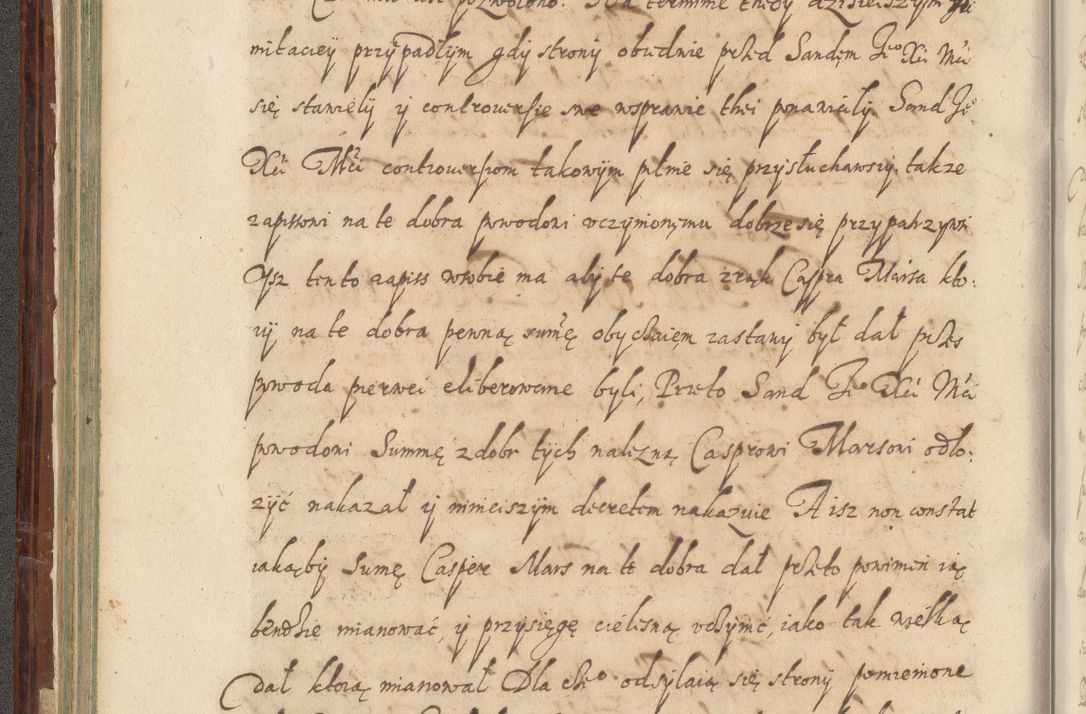 pozwolono. Na terminie thedy dzisieiszym
mitaciey przypadłym gdy strony obudnie przed Sandem Je⁰ Xci Mci
się stawiely y controversie swe wsprawie thei ponawiely. Sand Je⁰
Xci Mci controversiom takowym pilnie się przysłuchawszy, takze
zapissowi na te dobra powodowi uczynionemu dobrze się przypatrzywszy
Ysz tento zapiss wsobie ma aby te dobra zrąk Caspra Marsa kto-
ry na te dobra pewną summę obyczaiem zastawy był dał przes
powoda pierwei eliberowane byli, Przeto Sand Je⁰ Xci Mci
powodowi Summę zdobr tych nalezną Casprowi Marsowi odło-
zyć nakazał y ninieiszym decretem nakazuie A isz non constat
iakąby Sumę Casper Mars na te dobra dał przeto powinien ią
bendzie mianować, y przysięgę cielesną uczynić, iako tak wielką
dał ktorą mianował Dla cze⁰ odsyłaią się strony pomienione